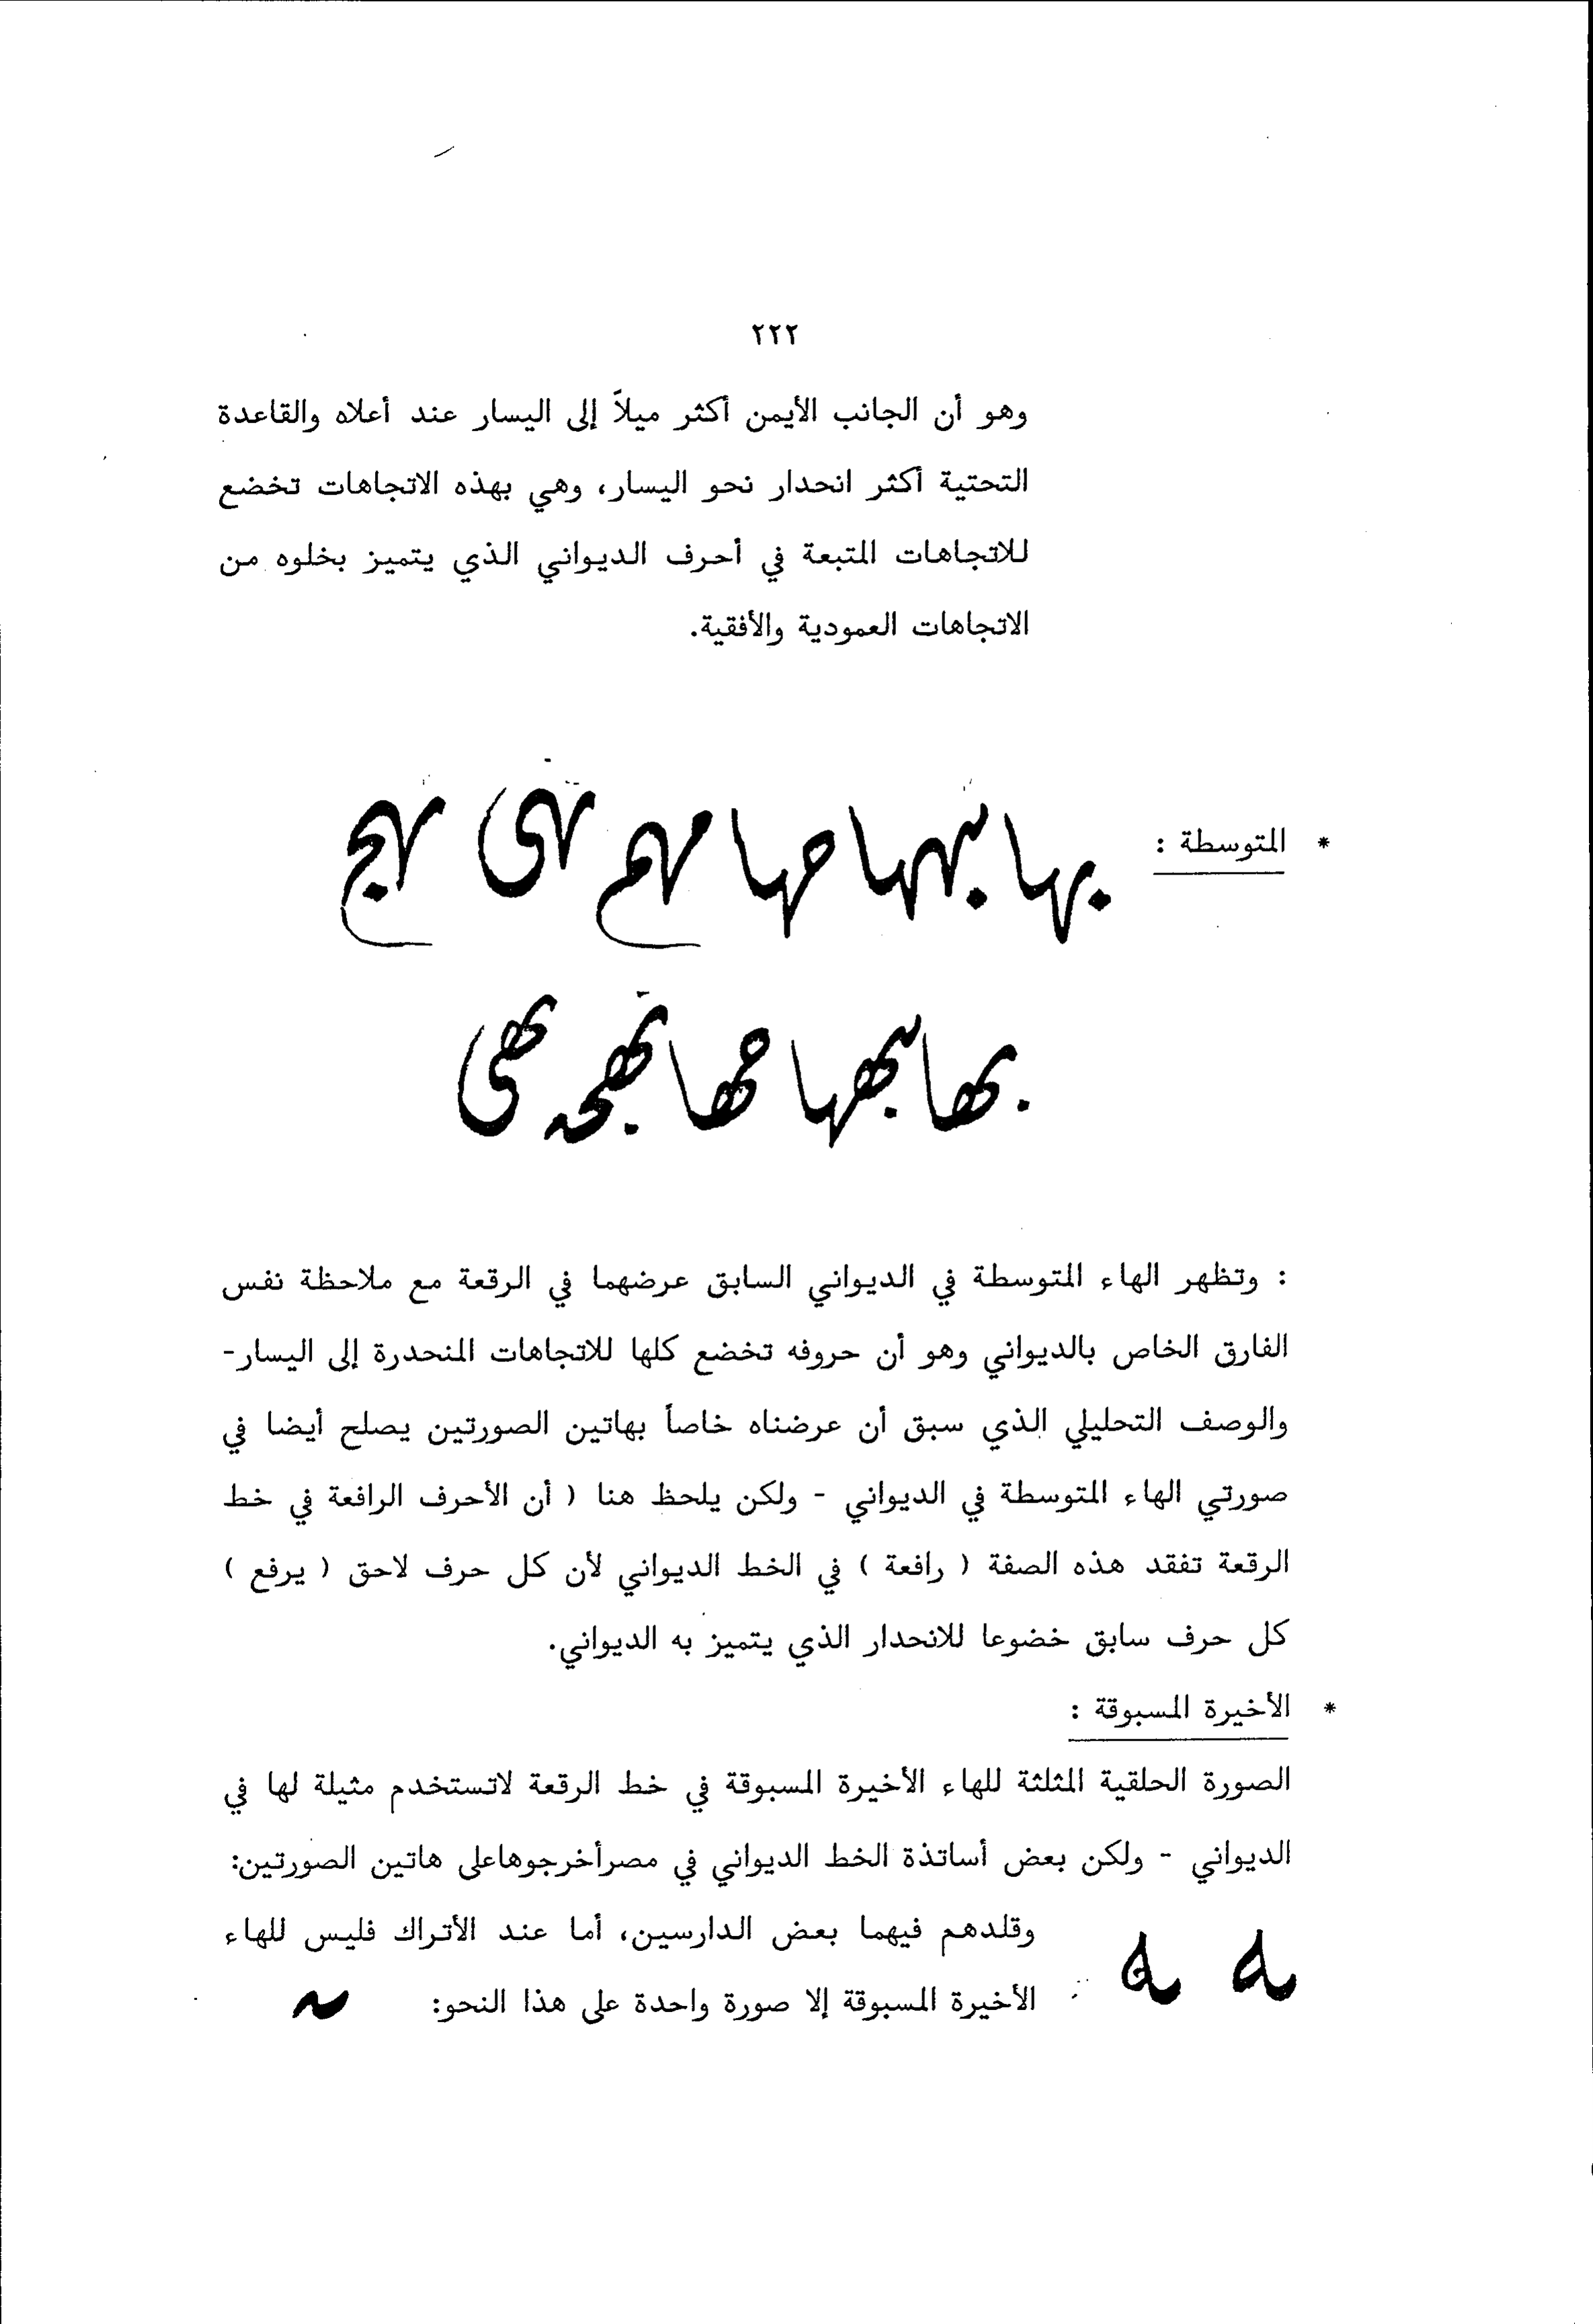 ٢٢٢
وهو أن الجانب الأيمن أكثر ميلاً إلى اليسار عند أعلاه والقاعدة
التحتية أكثر انحدار نحو اليسار، وهي بهذه الاتجاهات تخضع
للاتجاهات المتبعة في أحرف الديواني الذي يتميز بخلوه من
الاتجاهات العمودية والأفقية.
* المتوسطة :
بها بيها حها مهم نهى نهج
بها بيها حها بهجه نهى
: وتظهر الهاء المتوسطة في الديواني السابق عرضهما في الرقعة مع ملاحظة نفس
الفارق الخاص بالديواني وهو أن حروفه تخضع كلها للاتجاهات المنحدرة إلى اليسار-
والوصف التحليلي الذي سبق أن عرضناه خاصاً بهاتين الصورتين يصلح أيضا في
صورتي الهاء المتوسطة في الديواني - ولكن يلحظ هنا ( أن الأحرف الرافعة في خط
الرقعة تفقد هذه الصفة ( رافعة ) في الخط الديواني لأن كل حرف لاحق ( يرفع )
كل حرف سابق خضوعا للانحدار الذي يتميز به الديواني.
* الأخيرة المسبوقة :
الصورة الحلقية المثلثة للهاء الأخيرة المسبوقة في خط الرقعة لاتستخدم مثيلة لها في
الديواني - ولكن بعض أساتذة الخط الديواني في مصرأخرجوهاعلى هاتين الصورتين:
ـه ـه وقلدهم فيهما بعض الدارسين، أما عند الأتراك فليس للهاء
الأخيرة المسبوقة إلا صورة واحدة على هذا النحو: ـه